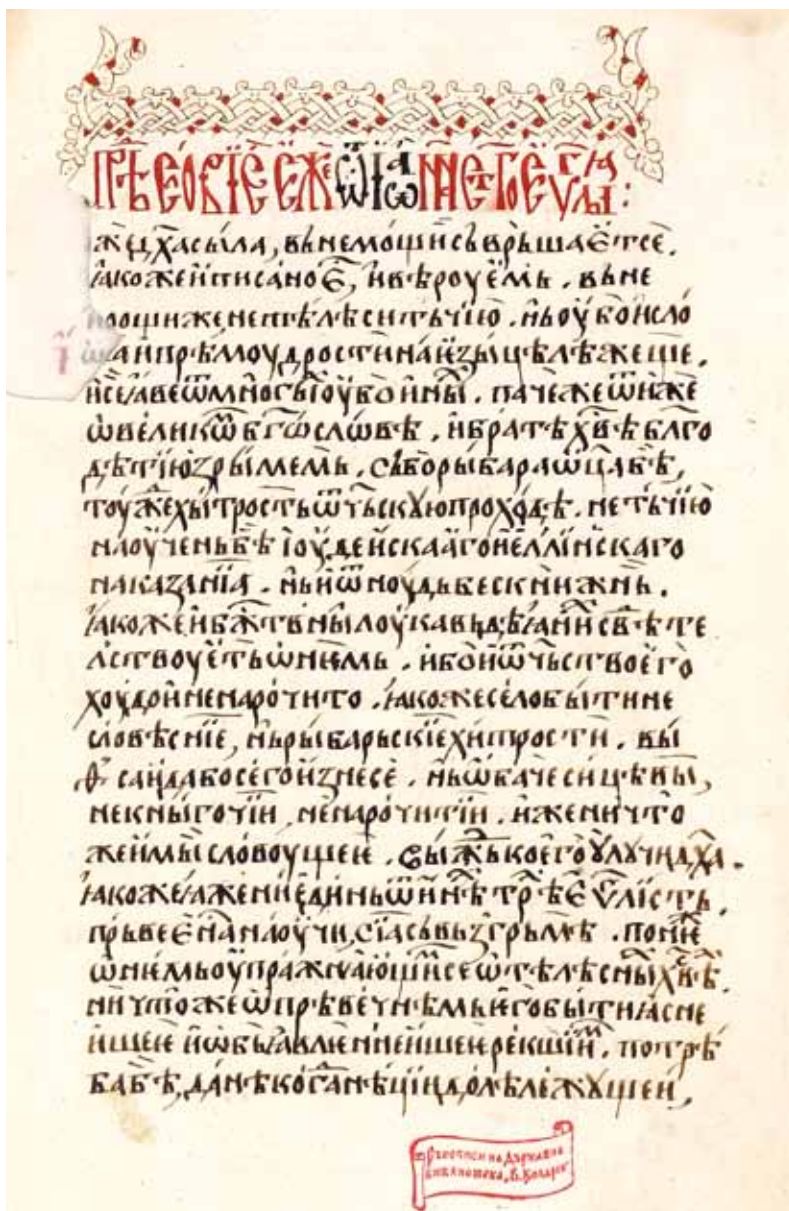 прѣⷣсловїе еже ѿ їѡана ст҃го еѵⷢлїа:
же дх҃а сыла, въ немощи съврьшаѐтсе.
ꙗкоже и писано є҆, и вѣроуемь. въ не
мощи же не тѣлеси тъчїю. нь оубо и сло
ва и прѣмоудрости на ѥзыцѣ лежеще.
и се ꙗве ѿ многыⷯ оубо инѣⷯ. паче же ѿ ниⷯже
ѡ велицѣⷨ б҃гѡсловѣ. и братѣ хв҃ѣ бл҃го
дѣтїю зрьїмь. рыбарь ѡц҃ь бѣ,
тоуже хытрость ѿчьскую проходѣ. не тъчїю
наоучень бѣ їоудейскааго и еллинскаго
наказанїа. нь и ѿноудь бескнижнь.
ꙗкоже и бжⷭ҇твныи лоука въ дѣꙗнїи свѣте
лствоуѐть ѡ нѥмь. ибо и ѿчьство ѐго
хоудо и ненарочито. ꙗкоже село бытине
словѣснїе, нь рыбарьскїе хитрости. вы
ѳсаида бо сего изнесе. нь ѡбаче сицевы,
некныгочїи, ненарочитїи. и же ничто
же имы словоущеѥ.
ꙗкоже ꙗже ни ѐдинь ѿ инѣⷯ трѣⷯ еѵⷢлїсть
прьвеѐ наⷭ наоучи, сїа съвьзгрьмѣ. понѥⷤ
ѡ нѥмь оупражнꙗющїи се ѡ тѣлѣсныⷯ хв҃ѣⷯ
ничтоже ѡ прѣвѣчнѣмь ѥго бытиꙗ сне
ищеѥ и ѡбьꙗвлѥннѣишеѥ рекшїиⷨ. потрѣ
ба бѣ, да нѣкогда нѣцїи долѣ лежущеи,
Ръкописи на Държавна
библиотека „В. Коларов“